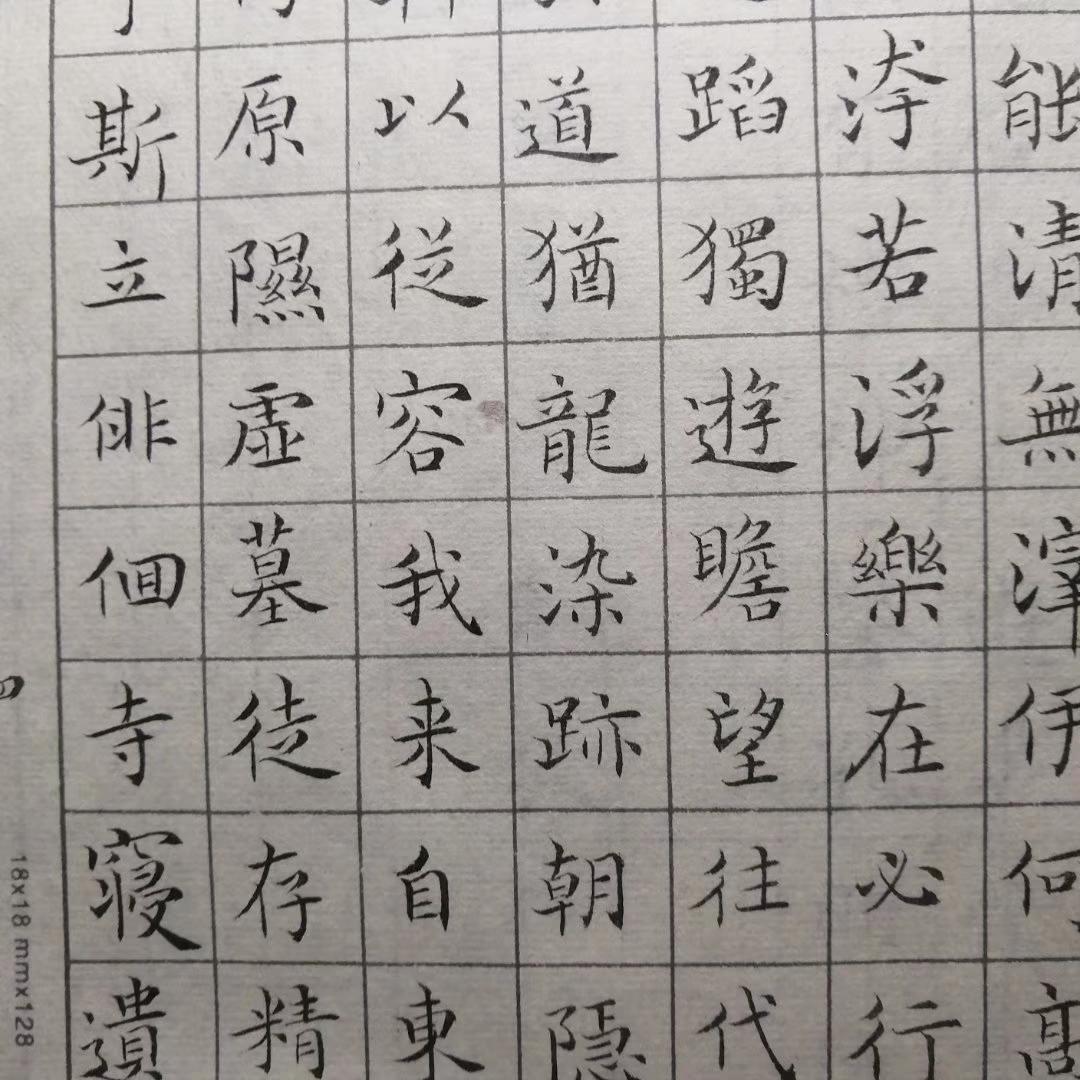 能清無滓伊何高
洿若浮樂在必行
蹈獨遊瞻望往代
道猶龍染跡朝隱
以從容我来自東
原隰虛墓徒存精
斯立俳佪寺寢遺
18x18 mmx128